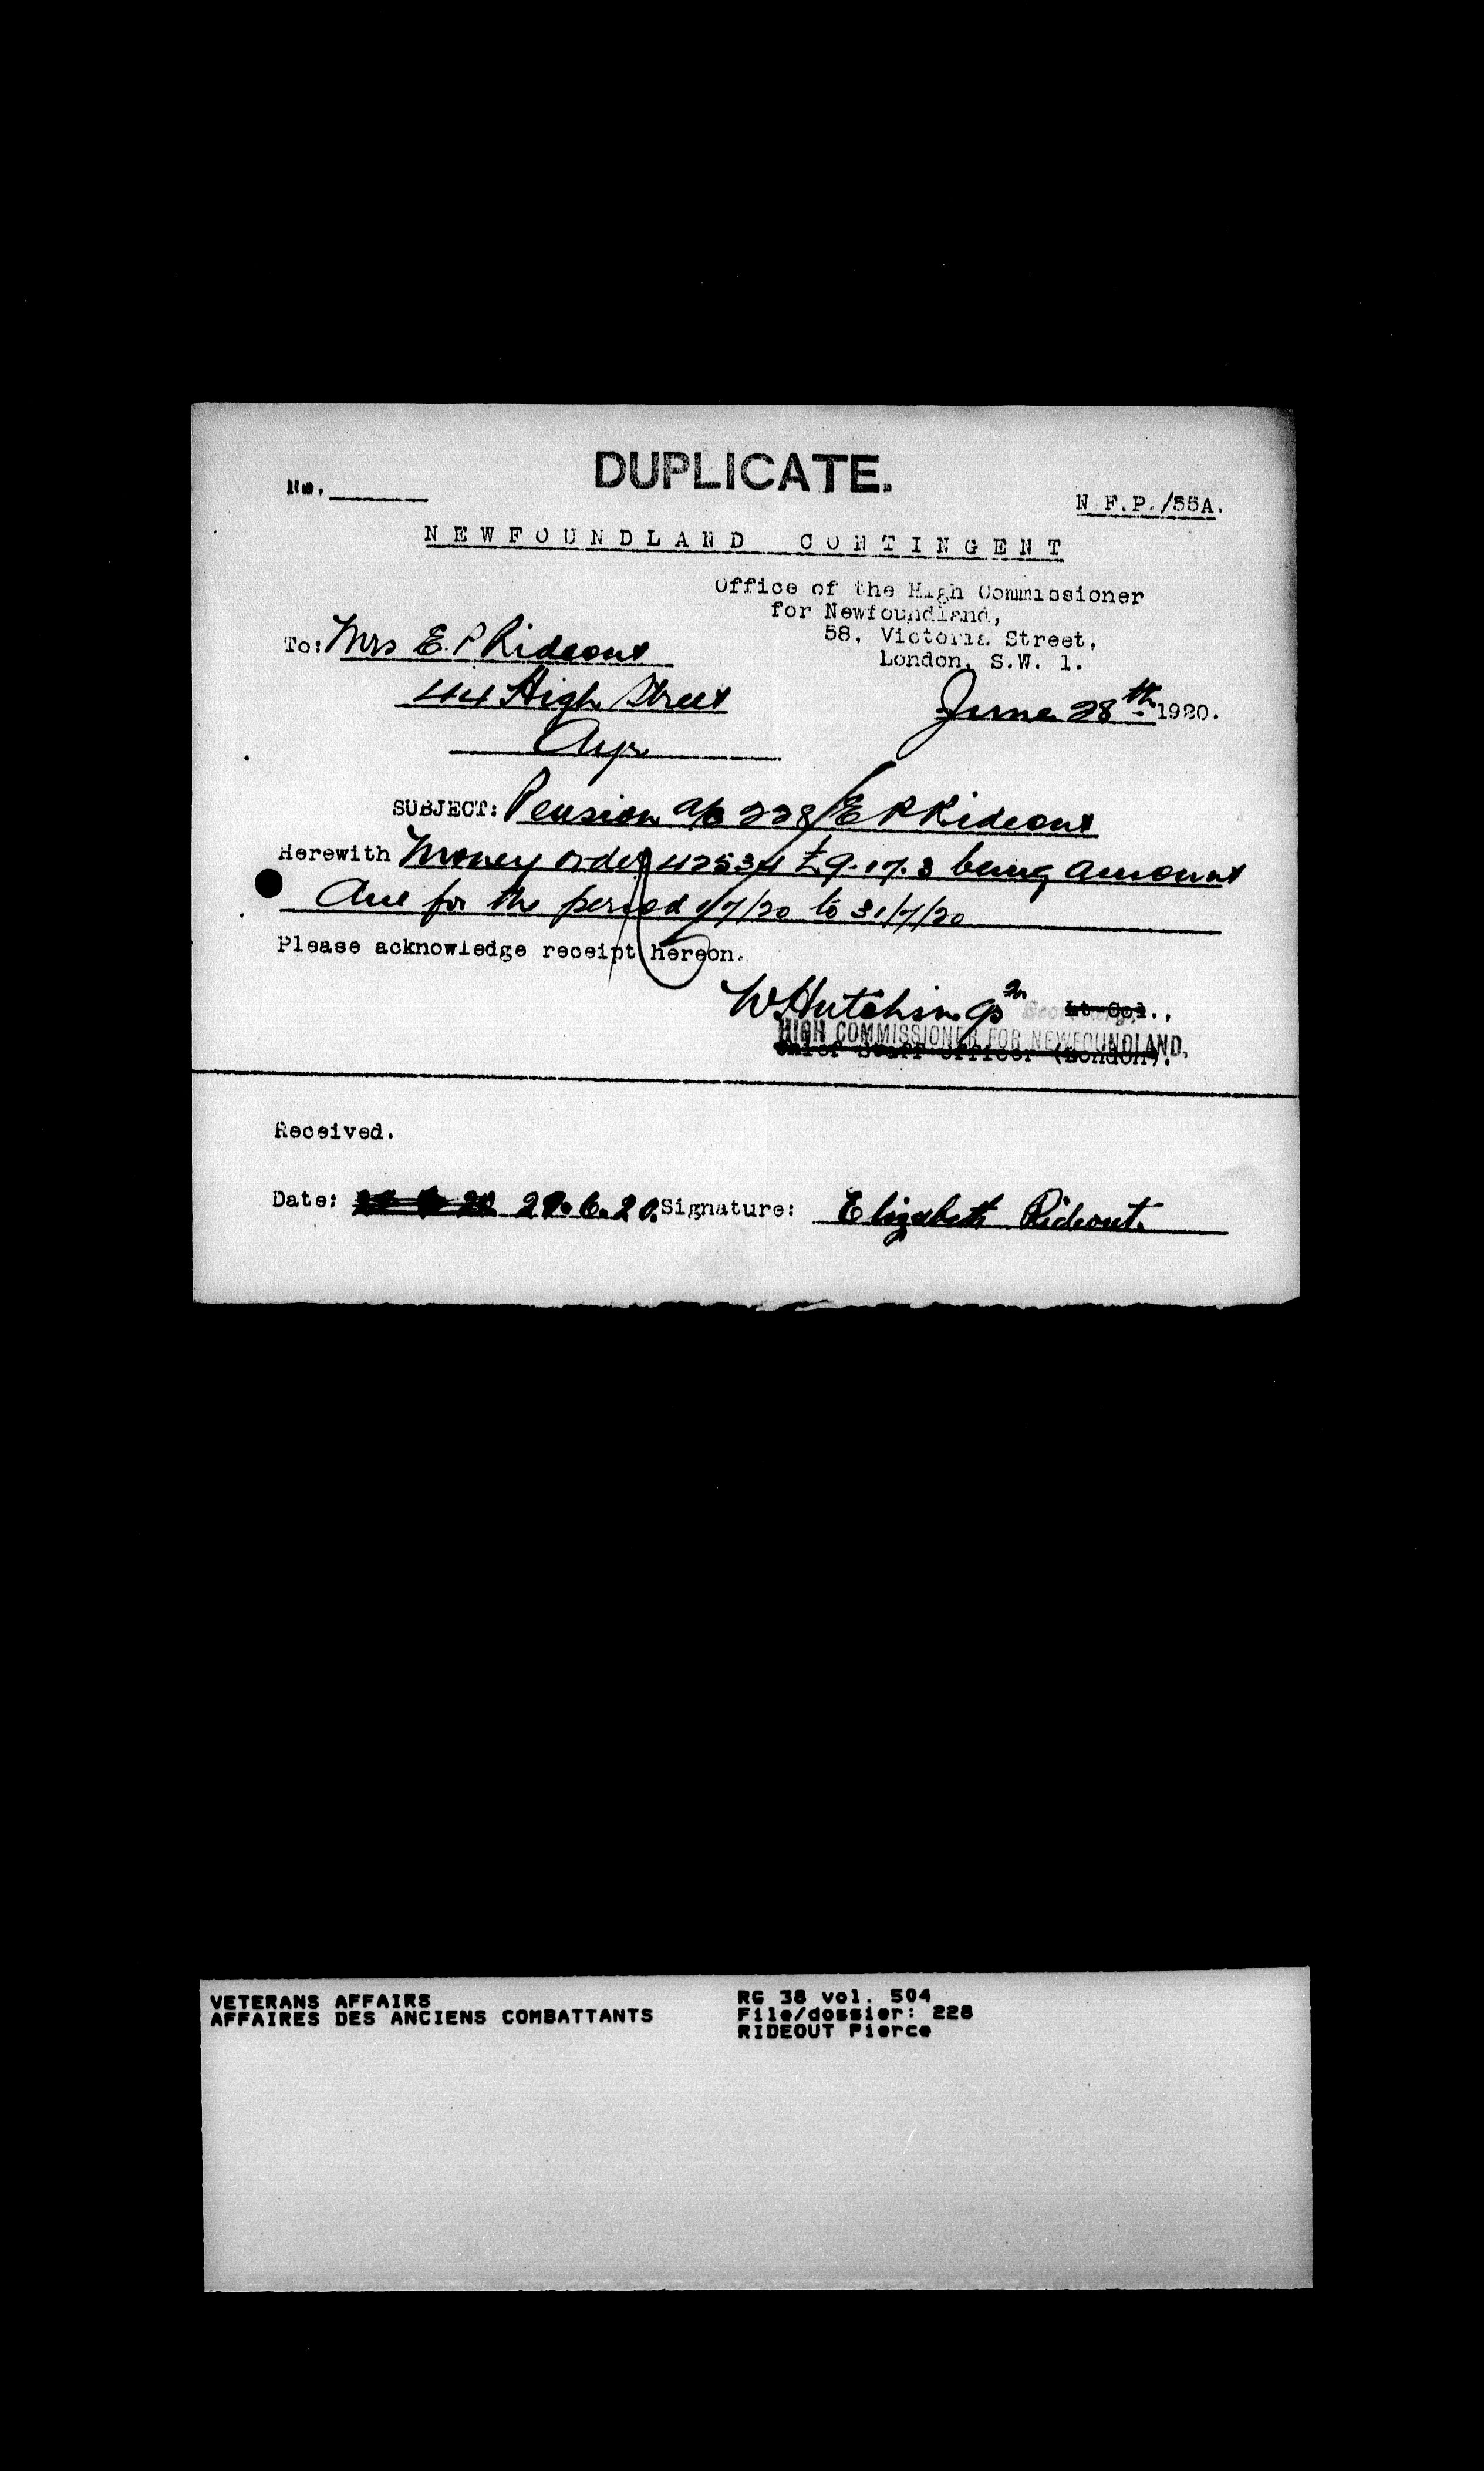 DUPLICATE.
No.
N.F.P./55A.
NEWFOUNDLAND CONTINGENT
Office of the High Commissioner
for Newfoundland,
58, Victoria Street,
London, S.W. 1.
To: Mrs E. P Rideout
44 High Street
Ayr
June 28th 1920.
SUBJECT: Pension a/c 228/E P Rideout
Herewith Money order 42534 £9.17.3 being amount
due for the period 1/7/20 to 31/7/20
Please acknowledge receipt hereon.
W Hutchings Lt-Col.,
HIGH COMMISSIONER FOR NEWFOUNDLAND.
Chief Staff Officer (London).
Received.
Date: 29.6.20. Signature: Elizabeth Rideout.
VETERANS AFFAIRS
AFFAIRES DES ANCIENS COMBATTANTS
RG 38 vol. 504
File/dossier: 228
RIDEOUT Pierce